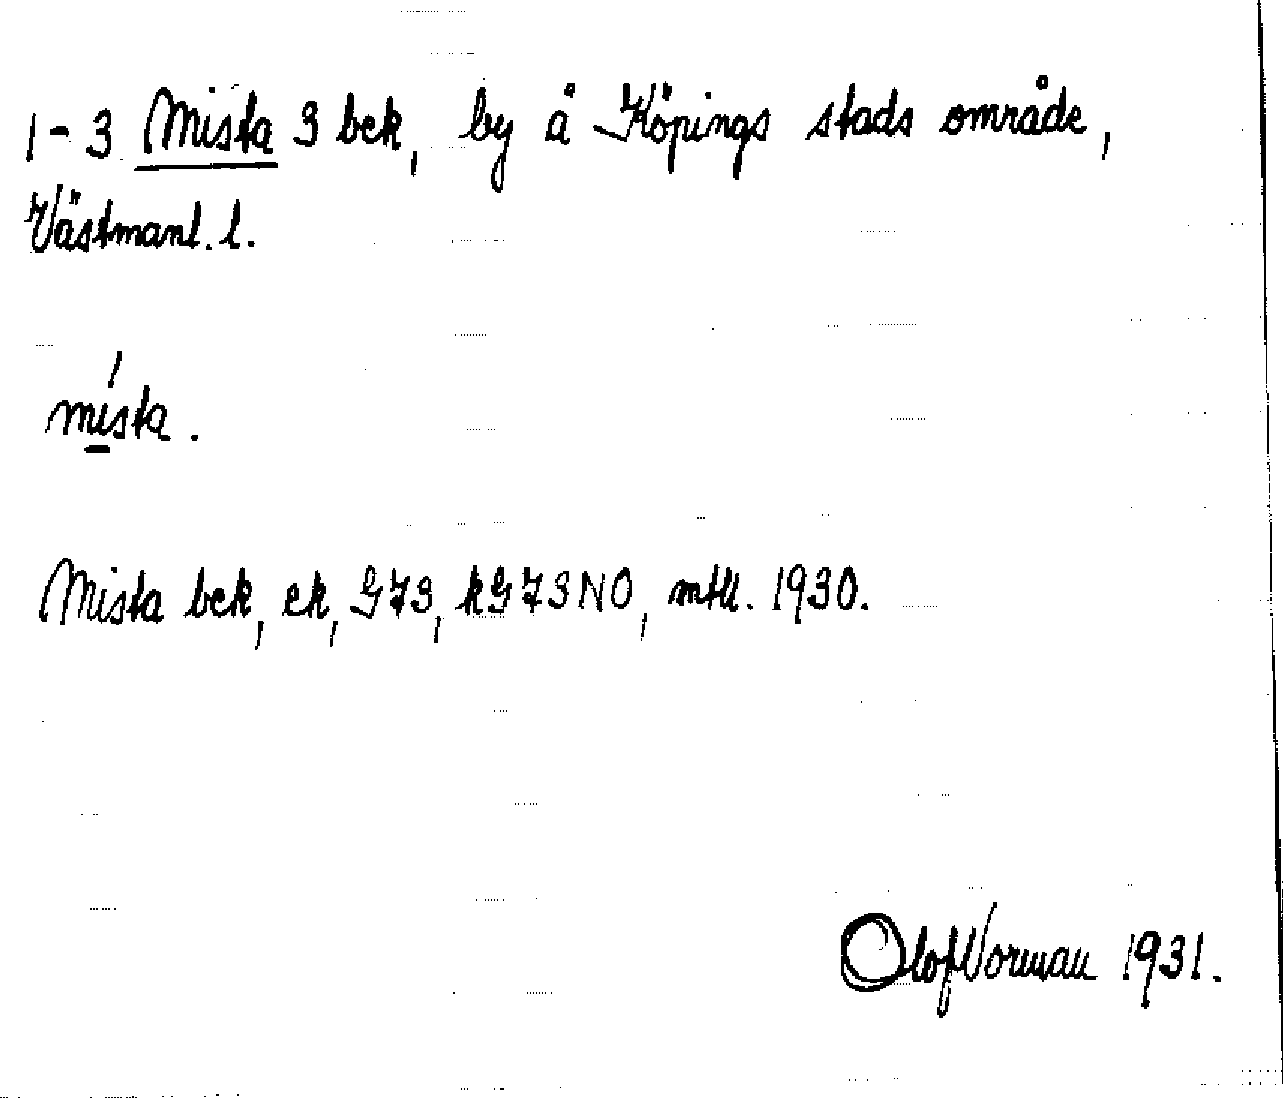 1-3 Mista 3 bek, by å Köpings stads område,
Västmanl. l.
místa.
Mista bek, ek, G73, kG73NO, mtl. 1930.
Olof Norman 1931.